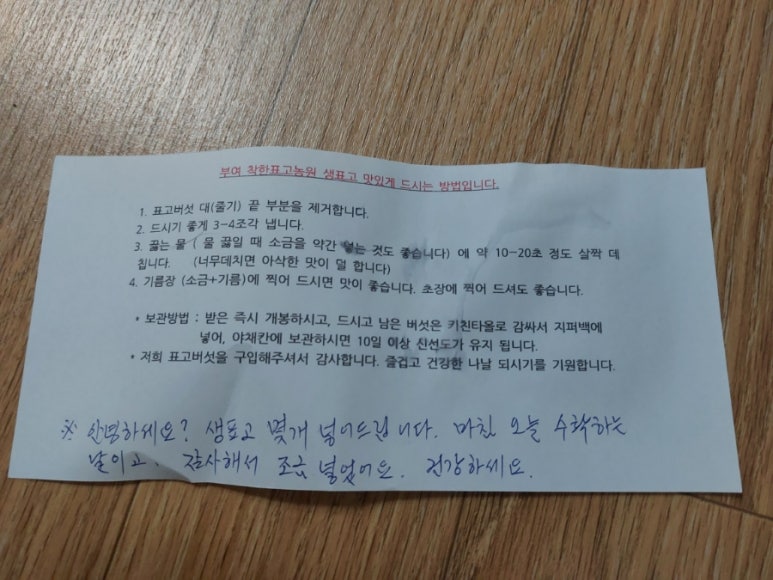 부여 착한표고농원 생표고 맛있게 드시는 방법입니다.
1. 표고버섯 대(줄기) 끝 부분을 제거합니다.
2. 드시기 좋게 3-4조각 냅니다.
3. 끓는 물 ( 물 끓일 때 소금을 약간 넣는 것도 좋습니다) 에 약 10-20초 정도 살짝 데
칩니다. (너무데치면 아삭한 맛이 덜 합니다)
4. 기름장 (소금+기름)에 찍어 드시면 맛이 좋습니다. 초장에 찍어 드셔도 좋습니다.
* 보관방법 : 받은 즉시 개봉하시고, 드시고 남은 버섯은 키친타올로 감싸서 지퍼백에
넣어, 야채칸에 보관하시면 10일 이상 신선도가 유지 됩니다.
* 저희 표고버섯을 구입해주셔서 감사합니다. 즐겁고 건강한 나날 되시기를 기원합니다.
※ 안녕하세요? 생표고 몇개 넣어드립니다. 마침 오늘 수확하는
날이고. 감사해서 조금 넣었어요. 건강하세요.